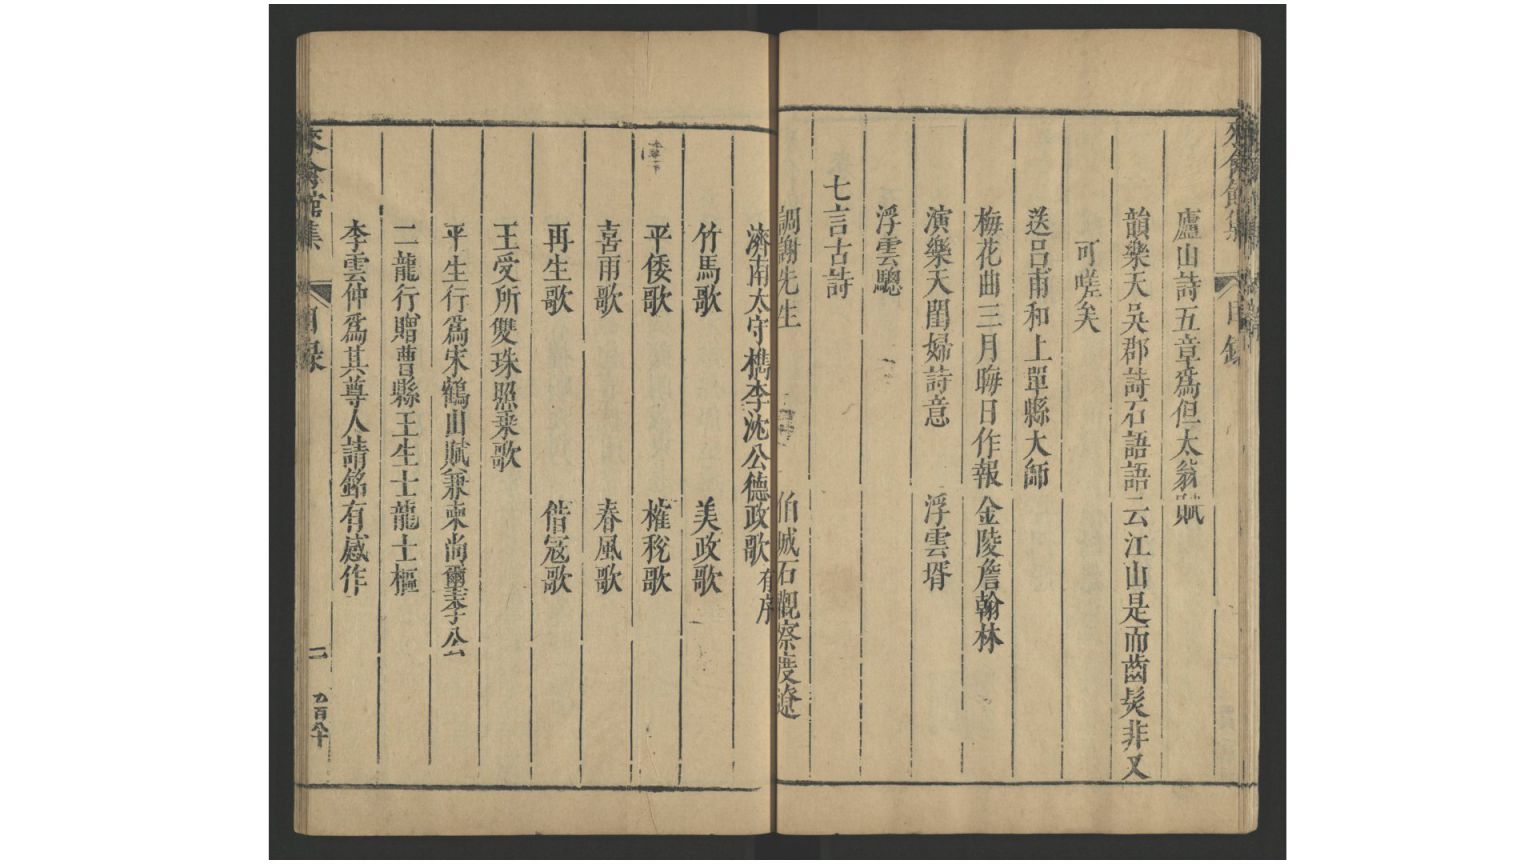 來禽館集
目錄
廬山詩五章為但太翁賦
韻樂天吳郡詩石語語云江山是而齒髮非又
可嗟矣
送呂甫和上單縣大師
梅花曲三月晦日作報金陵詹翰林
演樂天閨婦詩意 浮雲壻
浮雲驄
七言古詩
調謝先生 伯城石觀察度遼
濟南太守檇李沈公德政歌有序
竹馬歌 美政歌
平倭歌 榷稅歌
喜雨歌 春風歌
再生歌 借寇歌
王受所雙珠照乗歌
平生行爲宋鶴山賦兼柬尚璽李公
二龍行贈曹縣王生士龍士樞
李雲仲爲其尊人請銘有感作
來禽館集
目錄
二
九百八十